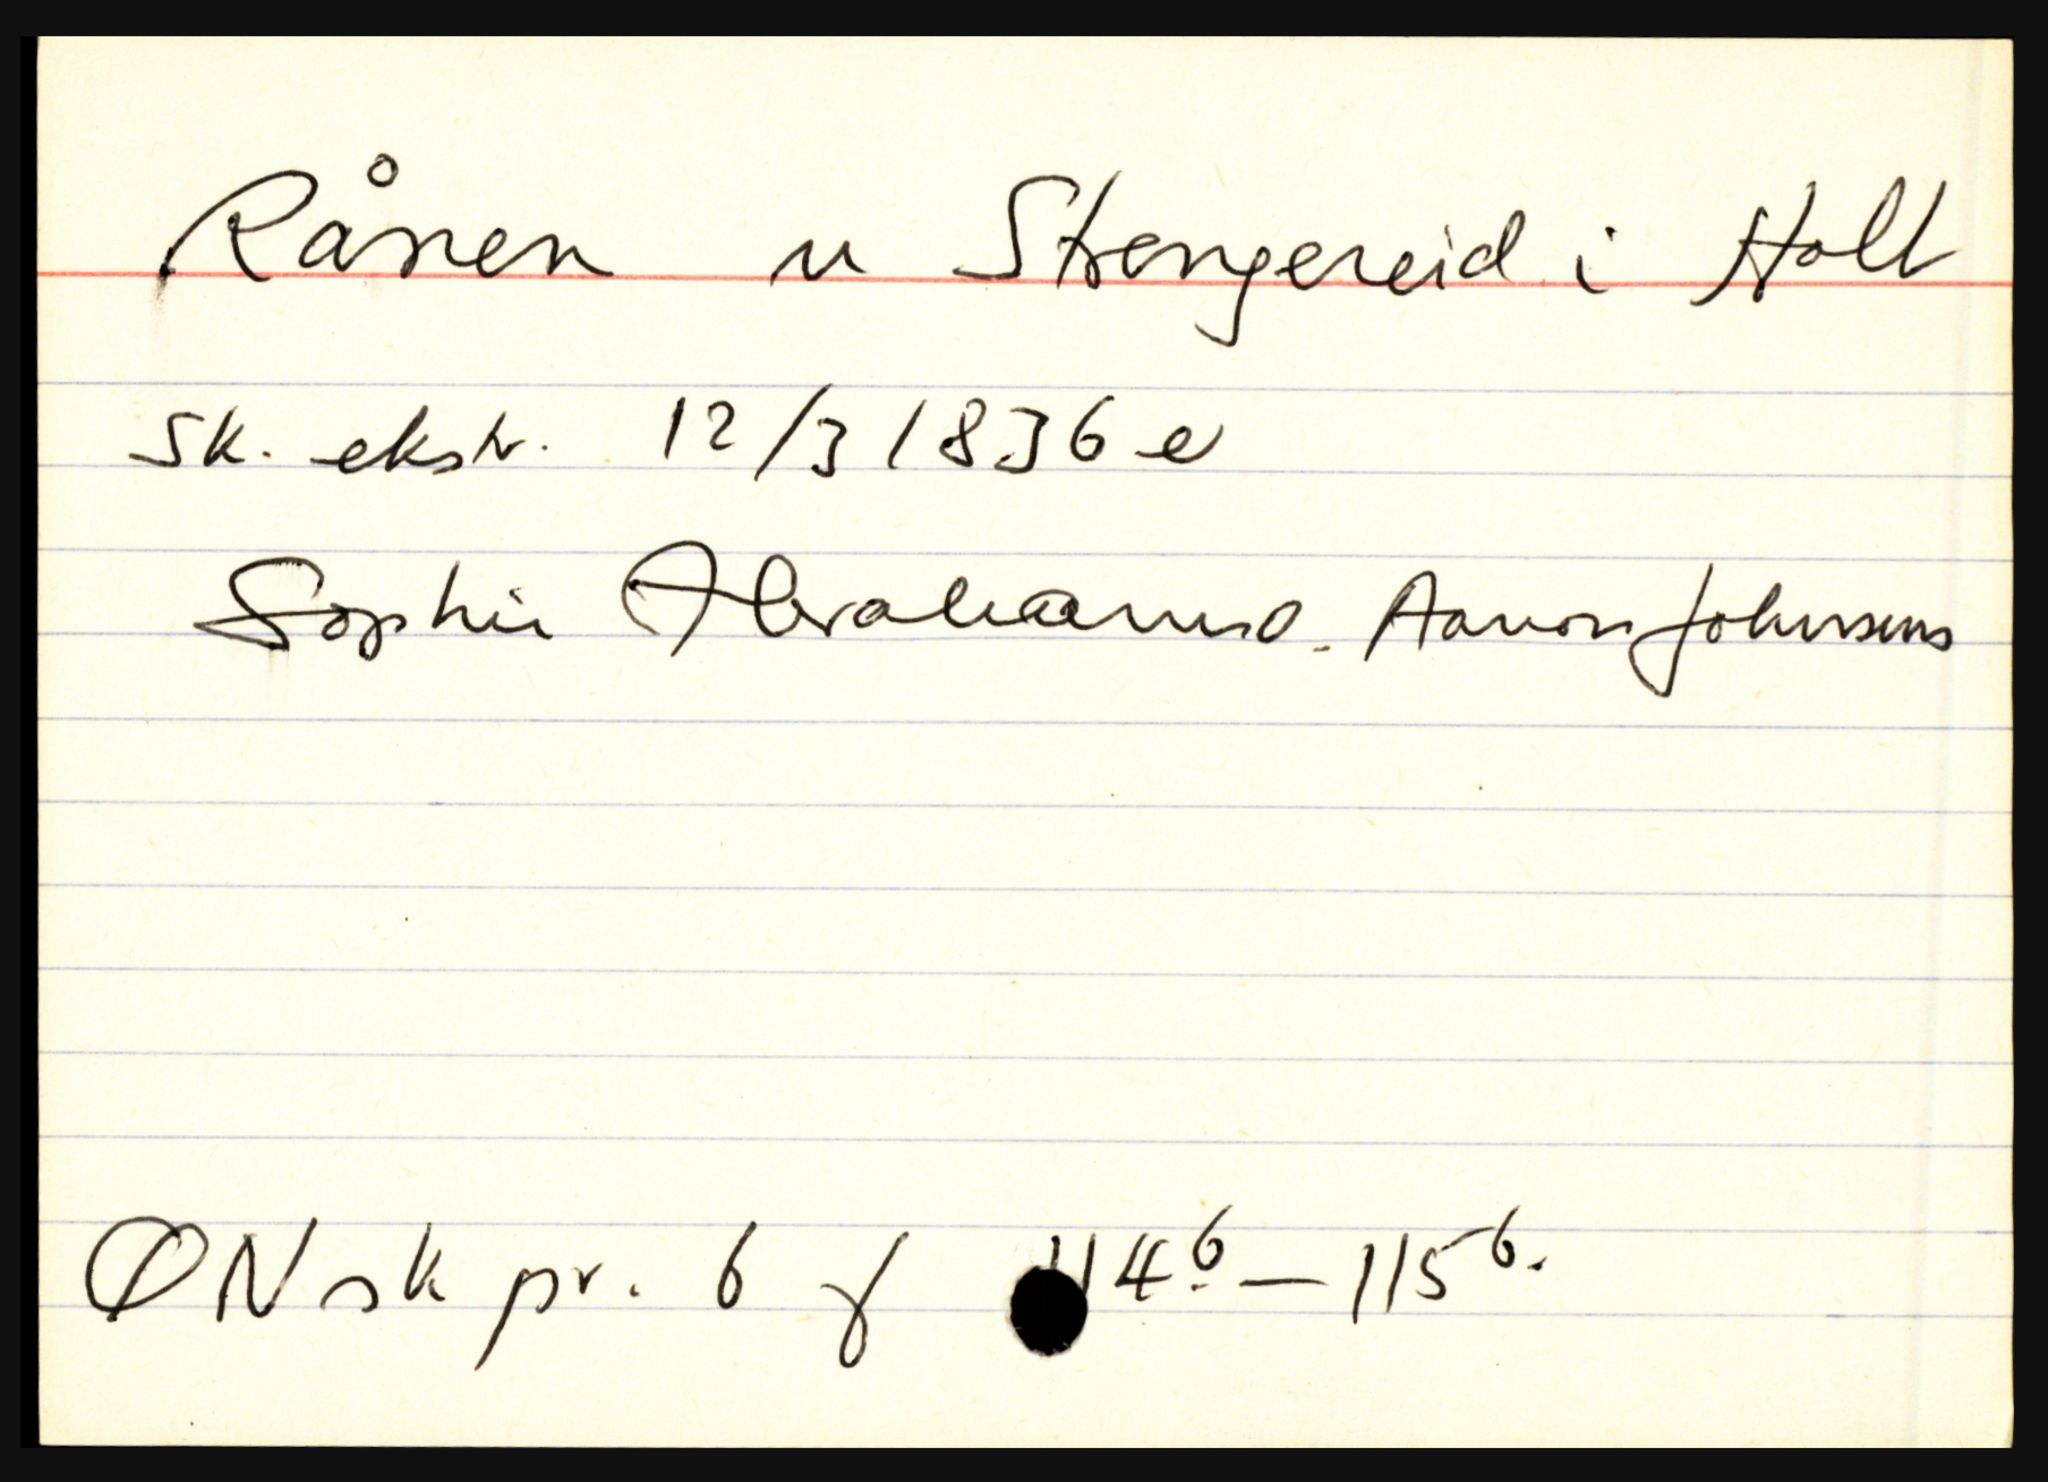 Rånen u Strengereid i Holt
sk. ekstr. 12/3 1836 e
Sophie Abrahamsd. Aanon Johnsens
ØN sk pr. 6 f 114⁶ — 115⁶.